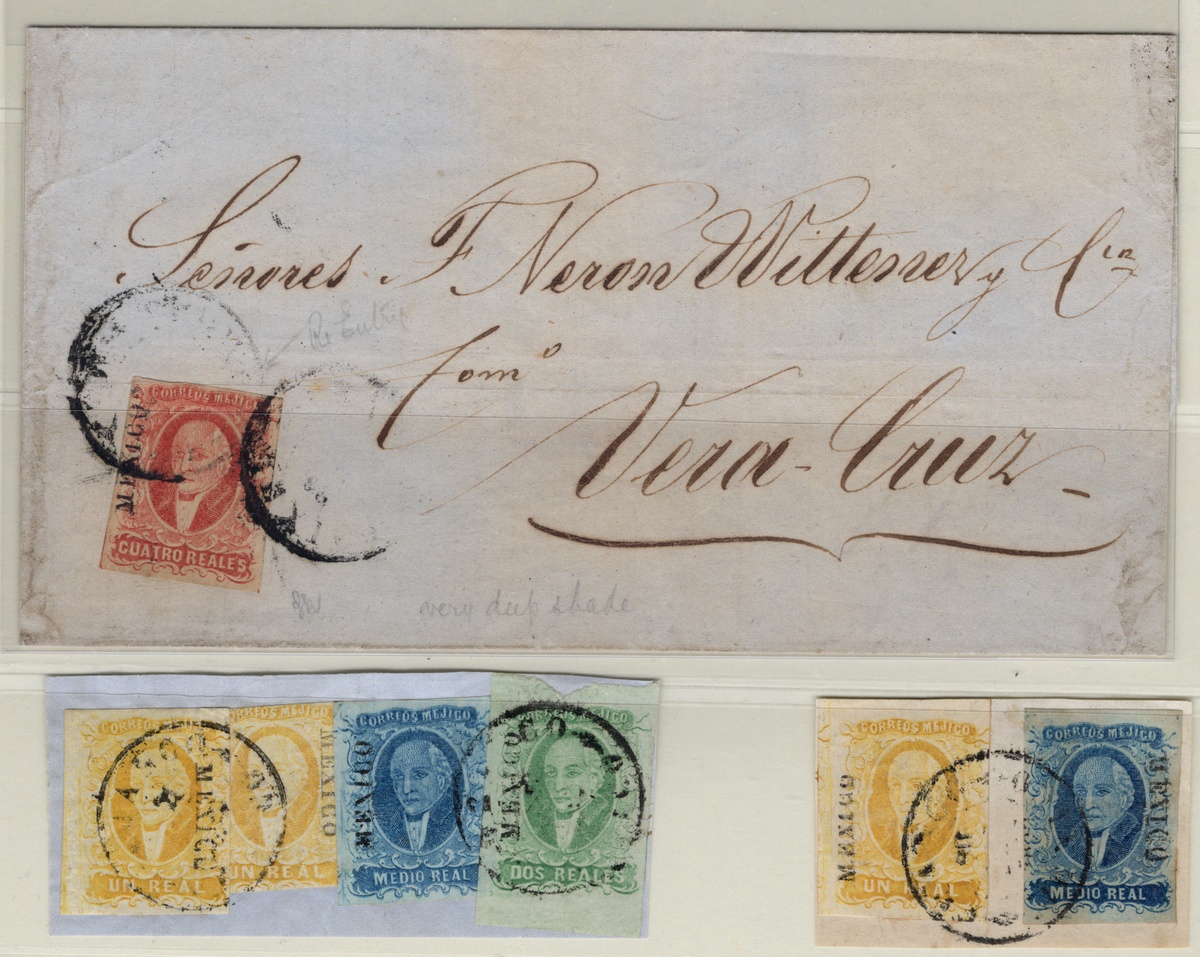 Señores F Neron Wittenez y Cia
Re Entry
Com⁰
Vera-Cruz-
CORREOS MEJICO
MEXICO
CUATRO REALES
very deep shade
CORREOS MEJICO
MEXICO
UN REAL
CORREOS MEJICO
MEXICO
UN REAL
CORREOS MEJICO
MEXICO
MEDIO REAL
CORREOS MEJICO
MEXICO
DOS REALES
CORREOS MEJICO
MEXICO
UN REAL
CORREOS MEJICO
MEXICO
MEDIO REAL